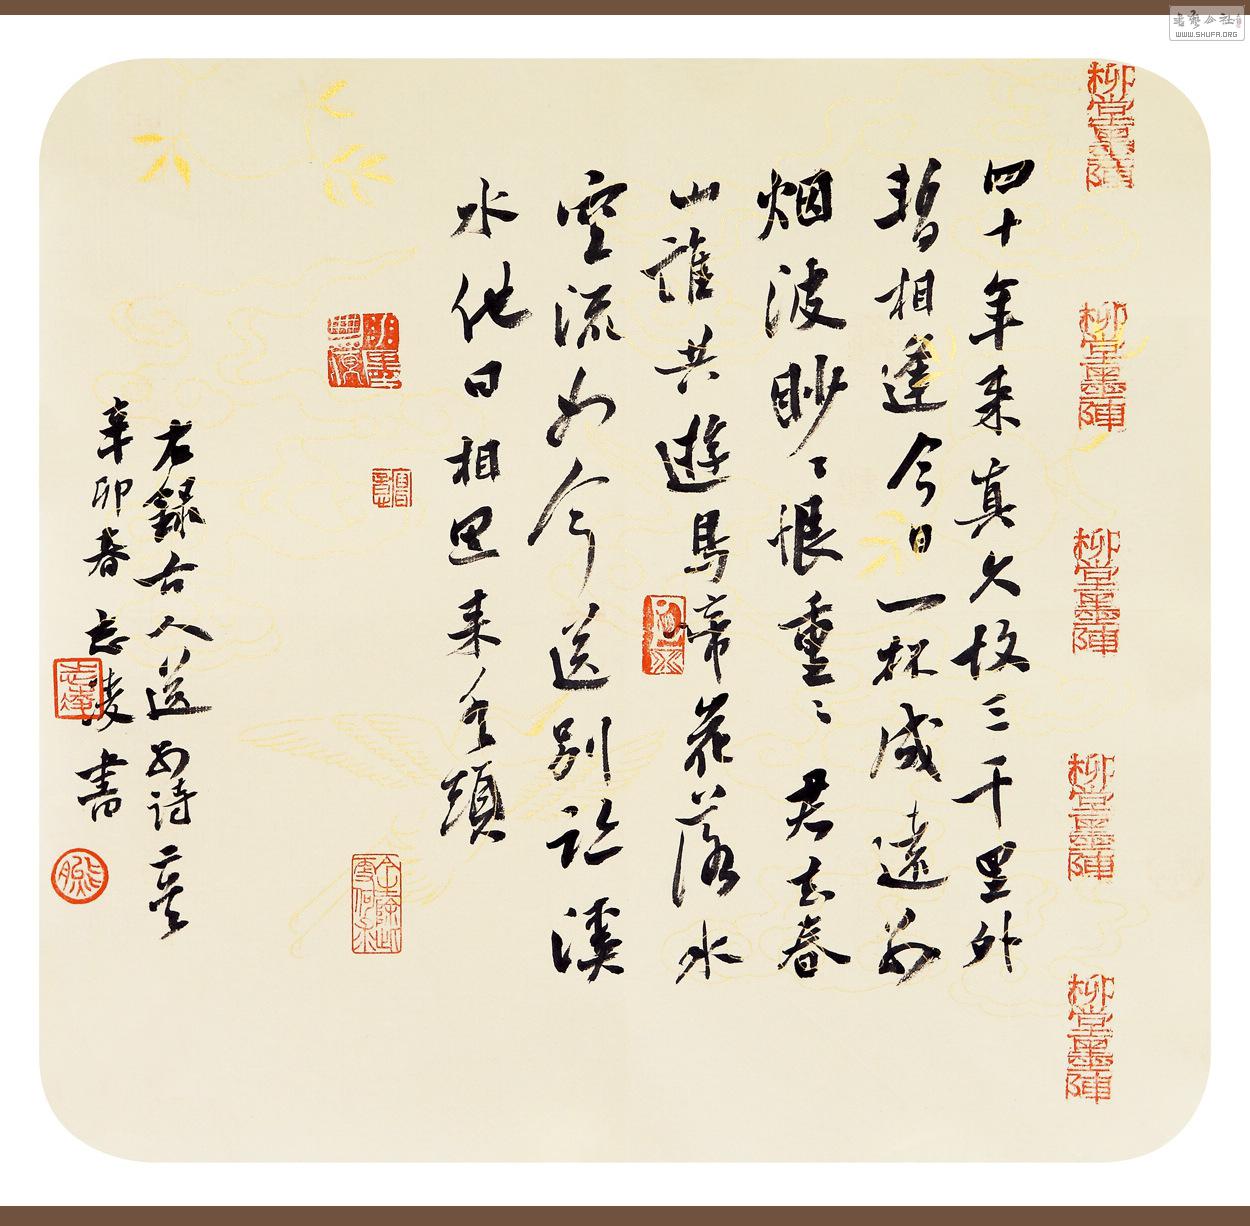 柳堂墨陣
柳堂墨陣
柳堂墨陣
柳堂墨陣
柳堂墨陣
四十年来真久故三千里外
暫相逢今日一杯成遠別
烟波眇〻恨重〻君去春
山誰共遊鳥啼花落水
空流如今送别臨溪
水他日相思来水頭
右録古人送别詩二首
辛卯春志凌書
WWW.SHUFA.ORG